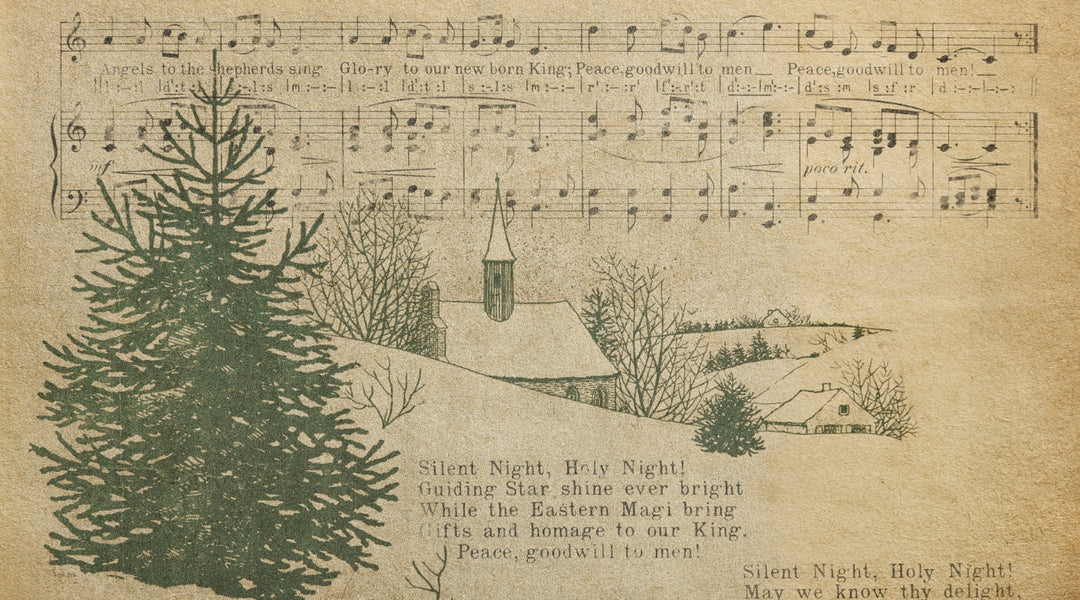 Angels to the shepherds sing Glo-ry to our new born King; Peace, goodwill to men__ Peace, goodwill to men!__
mf
poco rit.
Silent Night, Holy Night!
Guiding Star shine ever bright
While the Eastern Magi bring
Gifts and homage to our King.
Peace, goodwill to men!
Silent Night, Holy Night!
May we know thy delight,